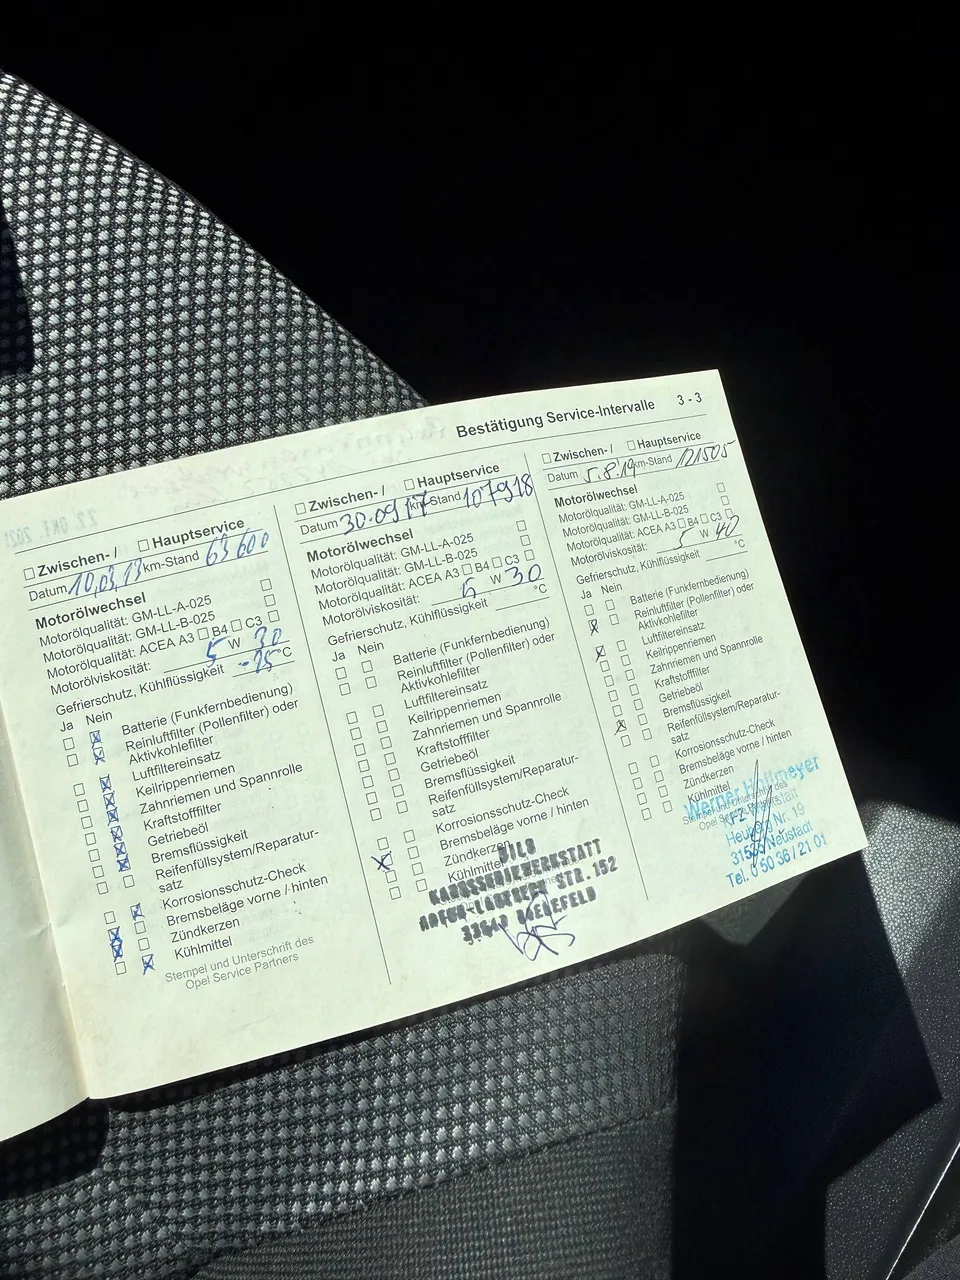 Bestätigung Service-Intervalle 3 - 3
☐ Zwischen- / ☐ Hauptservice
Datum 10,03,13 km-Stand 63 600
Motorölwechsel
Motorölqualität: GM-LL-A-025 ☐
Motorölqualität: GM-LL-B-025 ☐
Motorölqualität: ACEA A3 ☐ B4 ☐ C3 ☐
Motorölviskosität: 5 W 30
Gefrierschutz, Kühlflüssigkeit -25 °C
Ja Nein
Batterie (Funkfernbedienung)
Reinluftfilter (Pollenfilter) oder
Aktivkohlefilter
Luftfiltereinsatz
Keilrippenriemen
Zahnriemen und Spannrolle
Kraftstofffilter
Getriebeöl
Bremsflüssigkeit
Reifenfüllsystem/Reparatur-
satz
Korrosionsschutz-Check
Bremsbeläge vorne / hinten
Zündkerzen
Kühlmittel
Stempel und Unterschrift des
Opel Service Partners
☐ Zwischen- / ☐ Hauptservice
Datum 30.09.17 km-Stand 107918
Motorölwechsel
Motorölqualität: GM-LL-A-025 ☐
Motorölqualität: GM-LL-B-025 ☐
Motorölqualität: ACEA A3 ☐ B4 ☐ C3 ☐
Motorölviskosität: 5 W 30
Gefrierschutz, Kühlflüssigkeit °C
Ja Nein
Batterie (Funkfernbedienung)
Reinluftfilter (Pollenfilter) oder
Aktivkohlefilter
Luftfiltereinsatz
Keilrippenriemen
Zahnriemen und Spannrolle
Kraftstofffilter
Getriebeöl
Bremsflüssigkeit
Reifenfüllsystem/Reparatur-
satz
Korrosionsschutz-Check
Bremsbeläge vorne / hinten
Zündkerzen
Kühlmittel
KAROSSERIEWERKSTATT
STR. 152
BIELEFELD
☐ Zwischen- / ☐ Hauptservice
Datum 5.8.19 km-Stand 121505
Motorölwechsel
Motorölqualität: GM-LL-A-025 ☐
Motorölqualität: GM-LL-B-025 ☐
Motorölqualität: ACEA A3 ☐ B4 ☐ C3 ☐
Motorölviskosität: 5 W 40
Gefrierschutz, Kühlflüssigkeit °C
Ja Nein
Batterie (Funkfernbedienung)
Reinluftfilter (Pollenfilter) oder
Aktivkohlefilter
Luftfiltereinsatz
Keilrippenriemen
Zahnriemen und Spannrolle
Kraftstofffilter
Getriebeöl
Bremsflüssigkeit
Reifenfüllsystem/Reparatur-
satz
Korrosionsschutz-Check
Bremsbeläge vorne / hinten
Zündkerzen
Kühlmittel
Werner
Nr. 19
Neustadt
Tel. 0 50 36 / 21 01